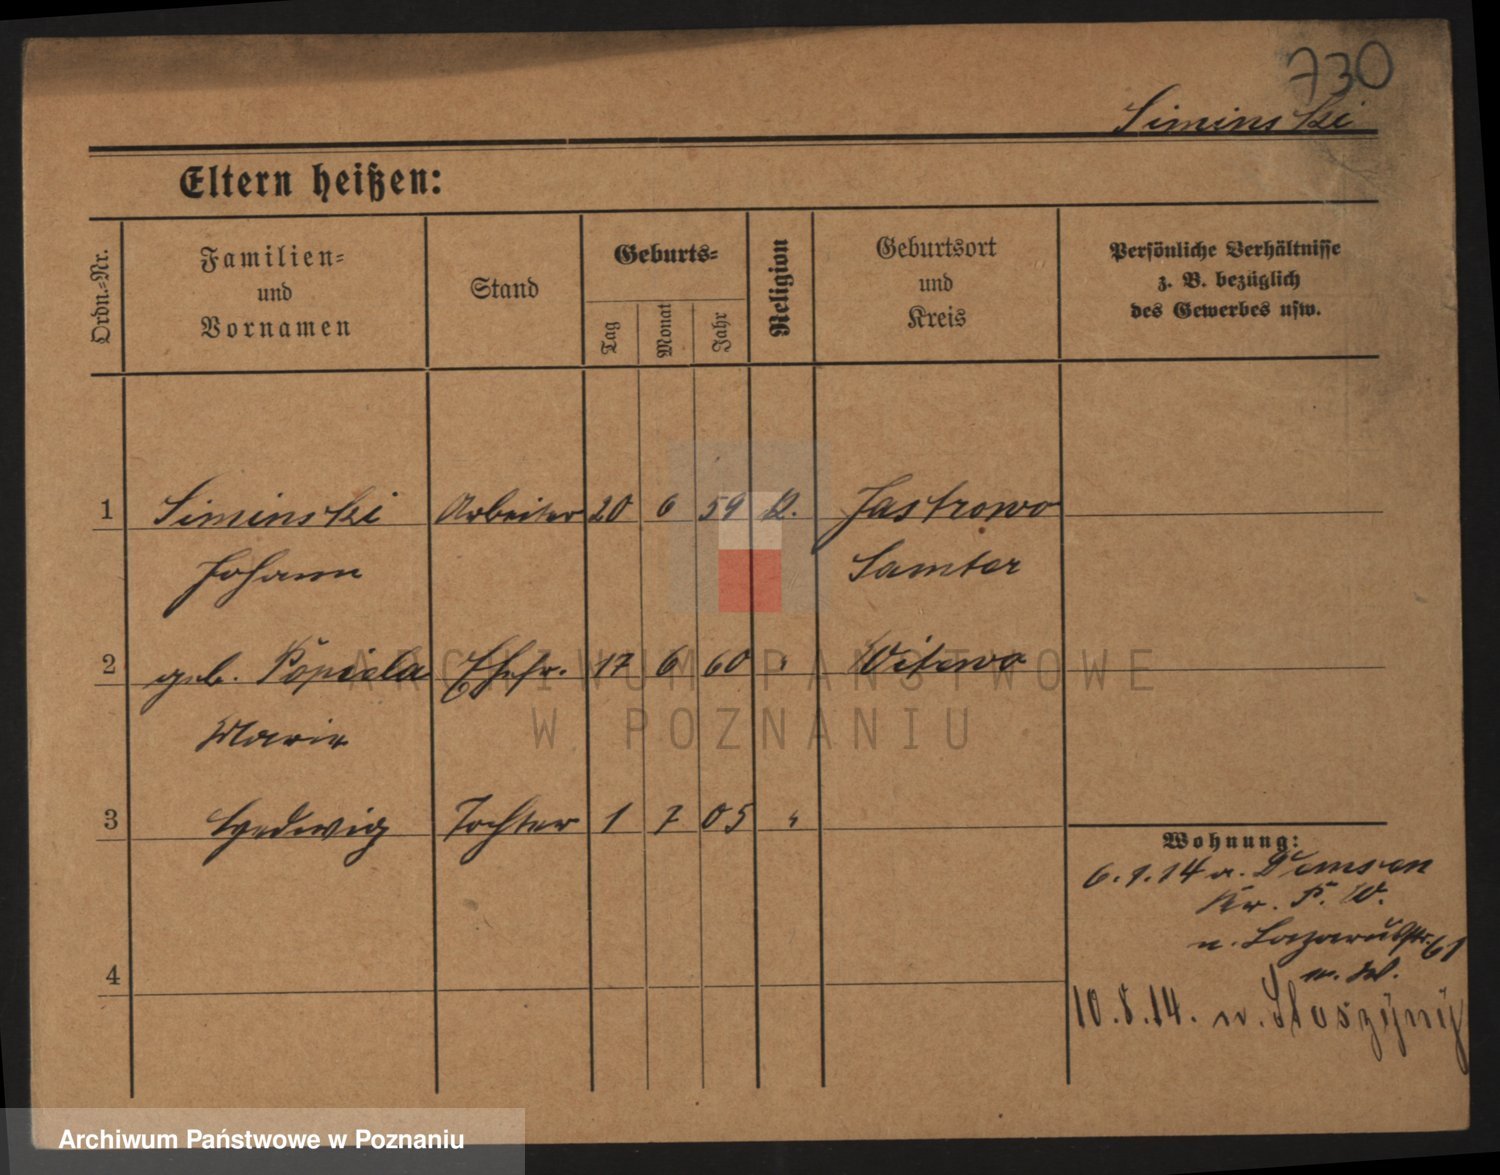 730
Siminski
Eltern heißen:
Ordn.-Nr.
Familien-
und
Vornamen
Stand
Geburts-
Tag
Monat
Jahr
Religion
Geburtsort
und
Kreis
Persönliche Verhältnisse
z. B. bezüglich
des Gewerbes usw.
1 Siminski Arbeiter 20 6 59 K. Jastrowo
Johann Samter
2 geb. Popiela Ehefr. 17 6 60 " Witowo
Marie
3 Hedwig Tochter 1 7 05 "
4
Wohnung:
6.1.14 a. Demsen
Kr. P. W.
n. Lazarusstr. 61
10.8.14. n.
ARCHIWUM PAŃSTWOWE
W POZNANIU
Archiwum Państwowe w Poznaniu